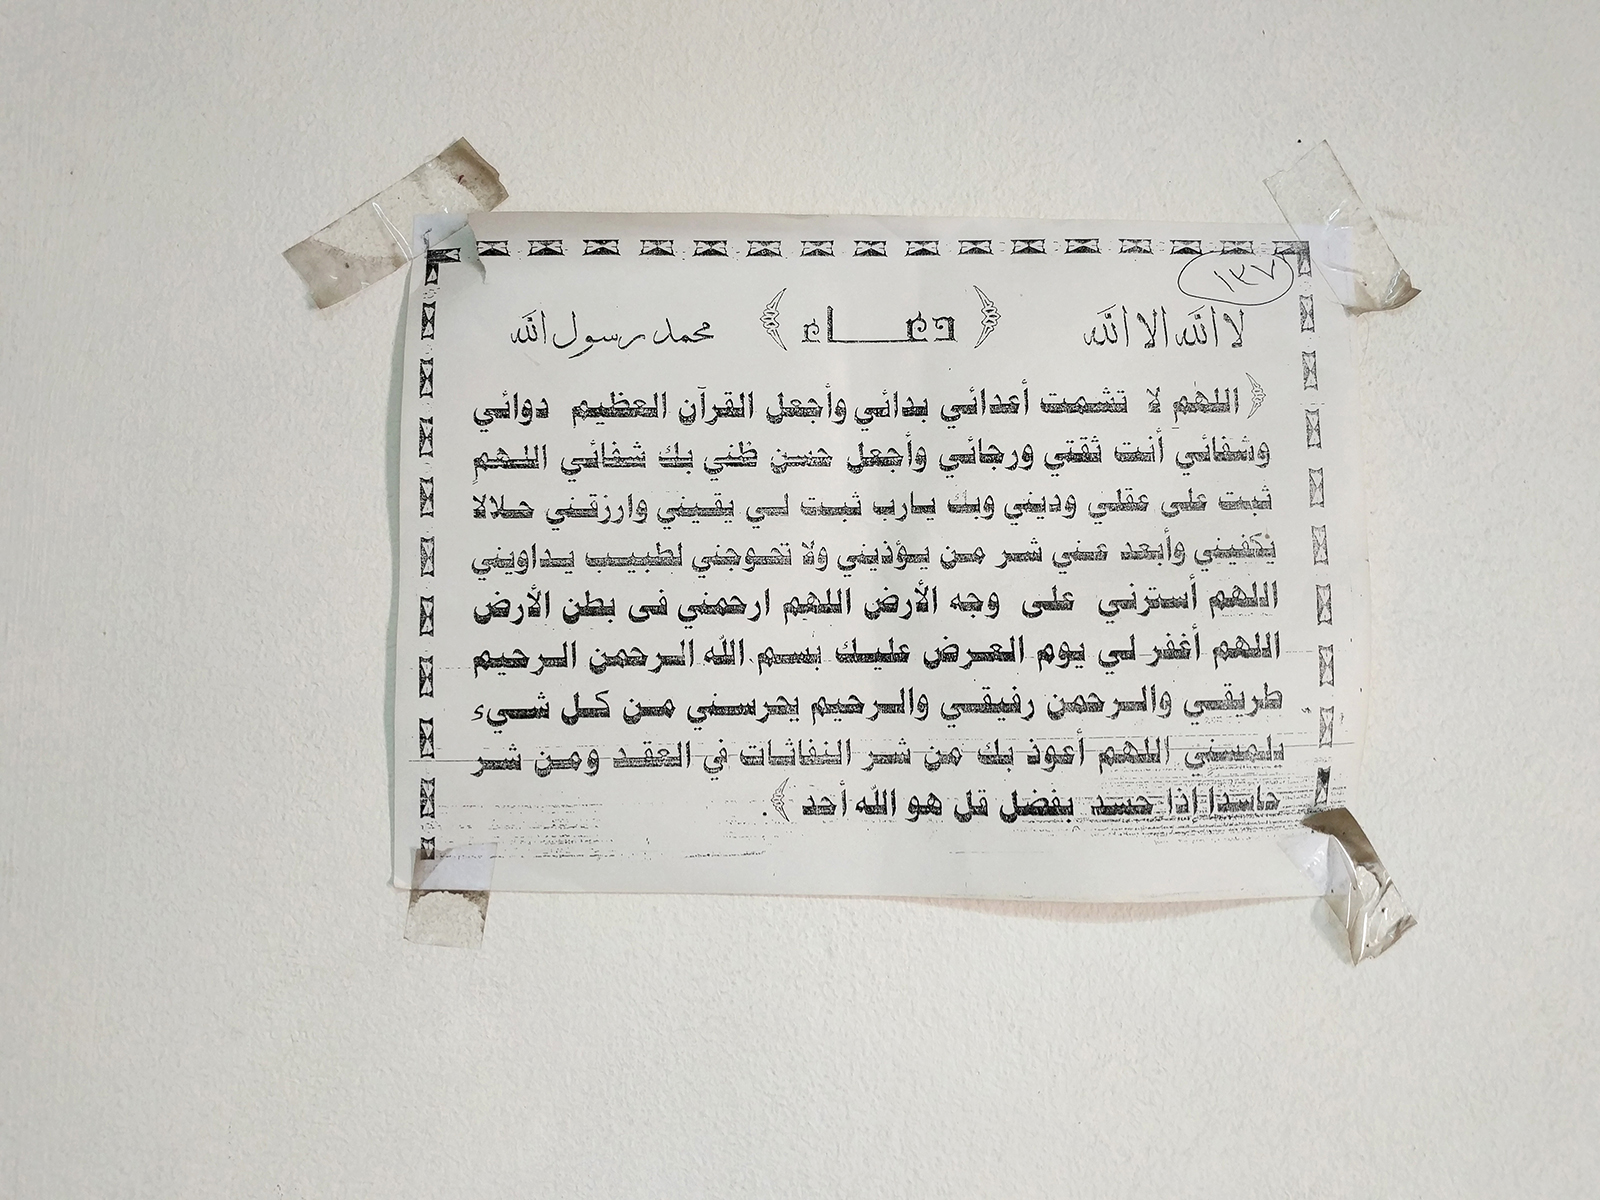 ١٣٧
لا الله الا الله ﴿ دعـــاء ﴾ محمد رسول الله
﴿ اللهم لا تشمت أعدائي بدائي وأجعل القرآن العظيم دوائي
وشفائي أنت ثقتي ورجائي وأجعل حسن ظني بك شفائي اللهم
ثبت على عقلي وديني وبك يارب ثبت لي يقيني وارزقني حلالا
يكفيني وأبعد عني شر من يؤذيني ولا تحوجني لطبيب يداويني
اللهم أسترني على وجه الأرض اللهم ارحمني فى بطن الأرض
اللهم أغفر لي يوم العرض عليك بسم الله الرحمن الرحيم
طريقي والرحمن رفيقي والرحيم يحرسني من كل شيء
يلمسني اللهم أعوذ بك من شر النفاثات في العقد ومن شر
حاسدا إذا حسد بفضل قل هو الله أحد ﴾ .